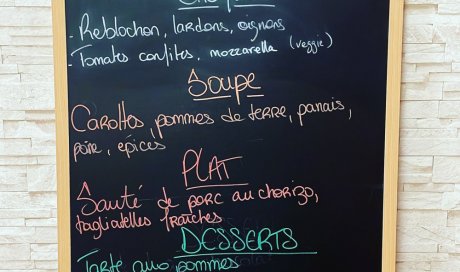 - Reblochon, lardons, oignons
- Tomates confites, mozzarella (veggie)
Soupe
Carottes, pommes de terre, panais,
poire, épices
PLAT
Sauté de porc au chorizo,
tagliatelles fraîches
DESSERTS
Tarte aux pommes